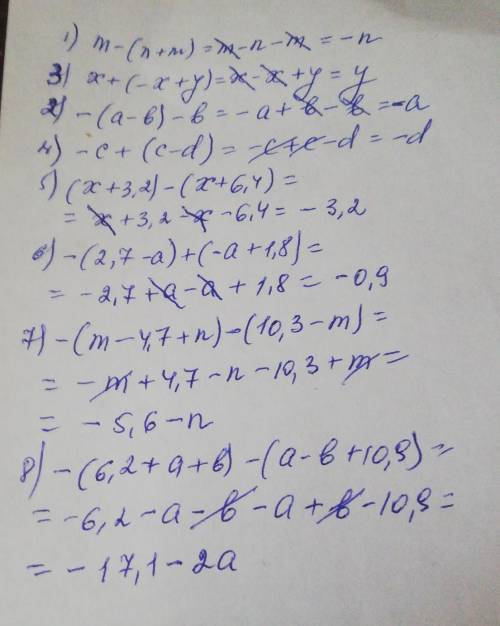 1) m-(n+m) = m-n-m = -n
3) x+(-x+y) = x-x+y = y
2) -(a-b)-b = -a+b-b = -a
4) -c+(c-d) = -c+c-d = -d
5) (x+3,2)-(x+6,4) =
= x+3,2-x-6,4 = -3,2
6) -(2,7-a)+(-a+1,8) =
= -2,7+a-a+1,8 = -0,9
7) -(m-4,7+n)-(10,3-m) =
= -m+4,7-n-10,3+m =
= -5,6-n
8) -(6,2+a+b)-(a-b+10,9) =
= -6,2-a-b-a+b-10,9 =
= -17,1-2a